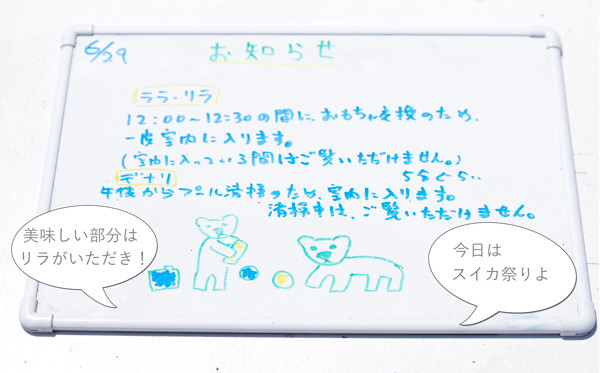 6/29
お知らせ
ララ・リラ
12:00〜12:30の間に、おもちゃ交換のため、
一度室内に入ります。
(室内に入っている間はご覧いただけません。)
デナリ
5分ぐらい
午後からプール清掃のため、室内に入ります。
清掃中は、ご覧いただけません。
美味しい部分は
リラがいただき!
今日は
スイカ祭りよ